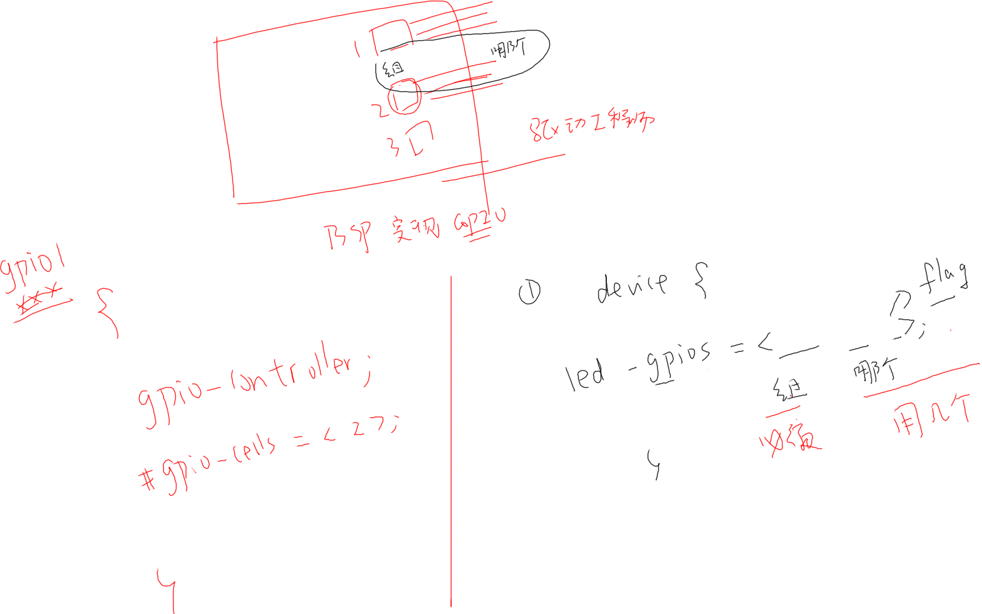 1
组 哪个
2
3
驱动工程师
BSP 实现 GPIO
gpio1
xxx {
gpio-controller;
#gpio-cells = < 2 >;
}
① device {
flag
led-gpios = < __ _ _ >;
组 哪个
必须 用几个
}